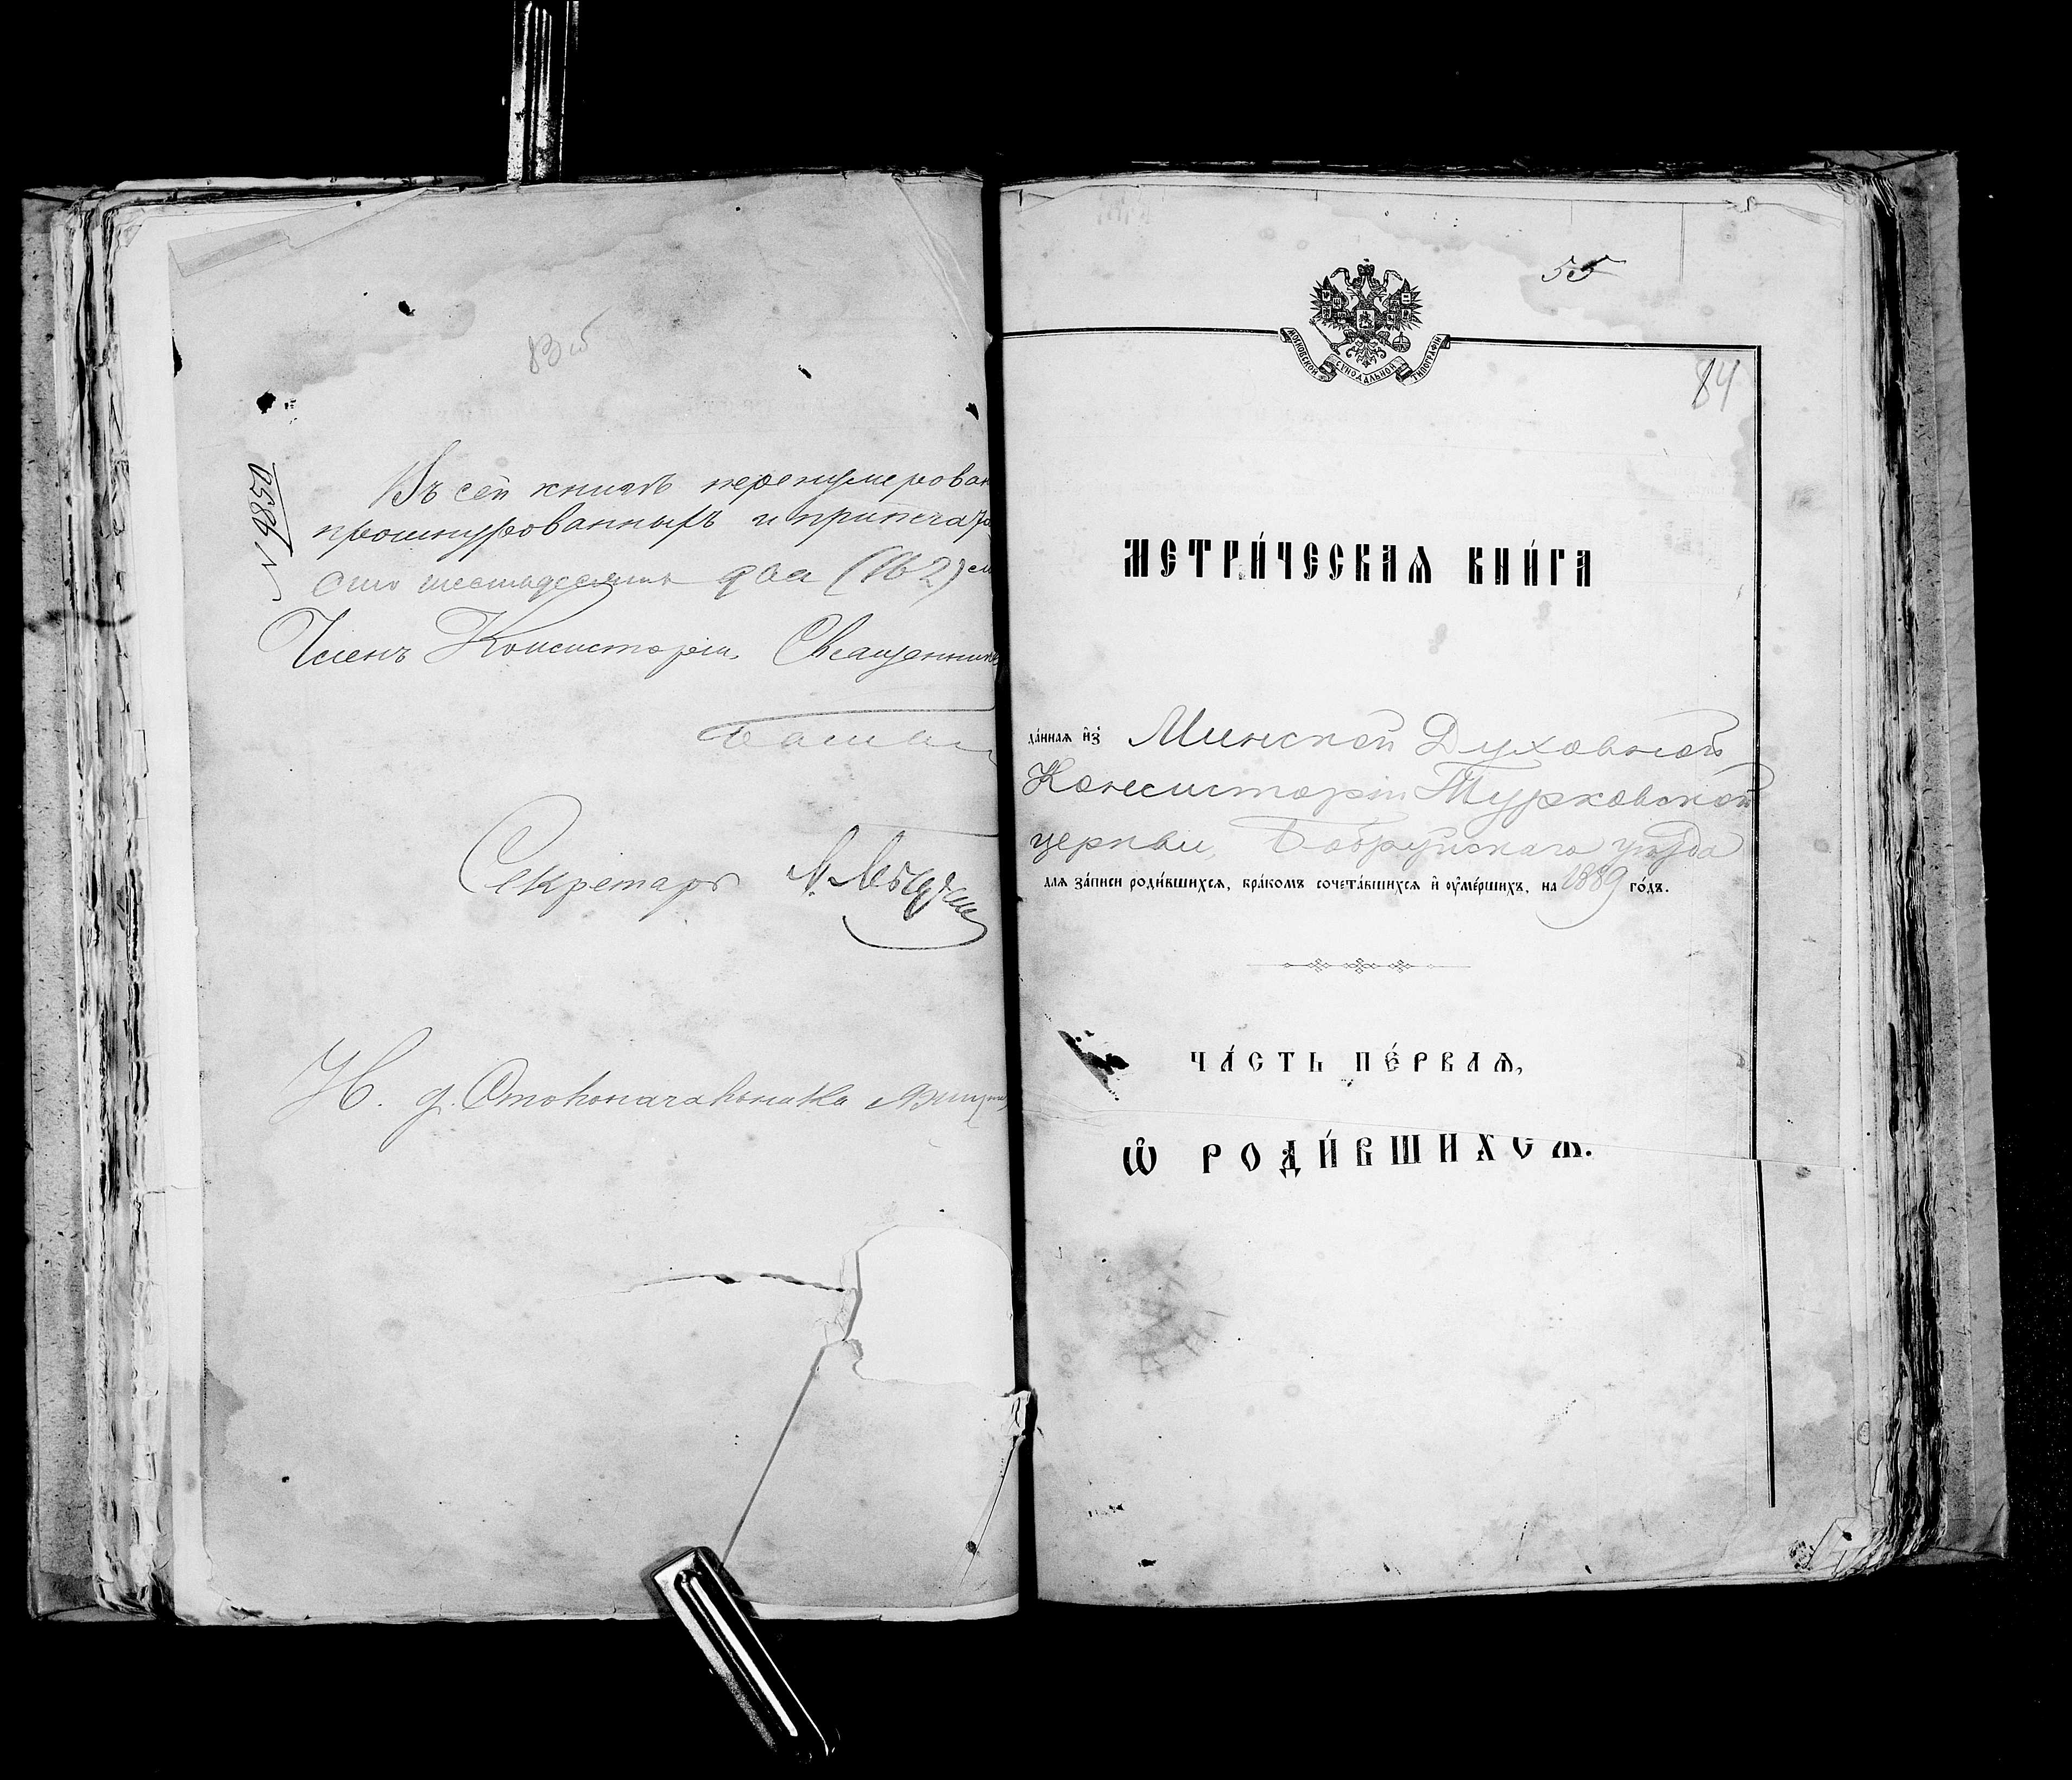 83 об
№ 9850
Въ сей книгѣ перенумерован
прошнурованныхъ и припечат
сто шестьдесятъ два (162)
Членъ Консисторіи, Священник
Секретарь
И. д. Столоначальника
55
МОСКОВСКОЙ СѴНОДАЛЬНОЙ ТИПОГРАФІИ
84
МЕТРИ́ЧЕСКАѦ КНИ́ГА
да́ннаѧ и҆з̾ Минской Духовной
Консисторіи Турковской
церкви, Бобруйскаго уѣзда
для за́писи роди́вшихсѧ, бра́комъ сочета́вшихсѧ и҆ ᲂу҆ме́ршихъ, на 1889 го́дъ.
ЧА́СТЬ ПЕ́РВАѦ,
Ѡ҆ РОДИ́ВШИХСѦ.